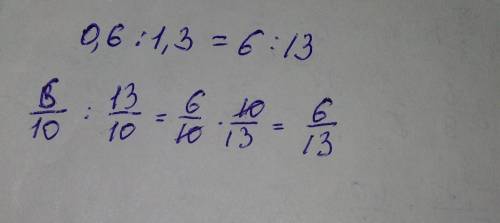 0,6 : 1,3 = 6 : 13
6/10 : 13/10 = 6/10 · 10/13 = 6/13